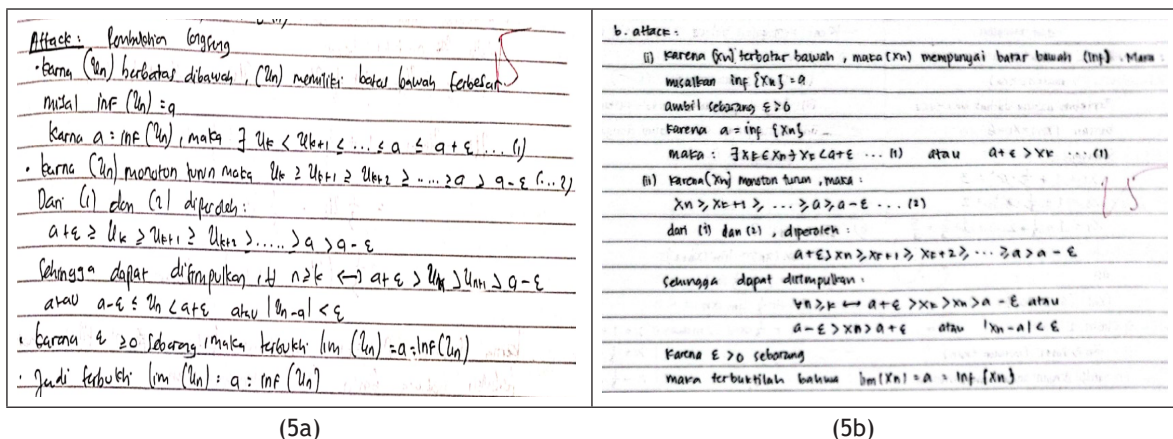 Attack : Pembuktian langsung
15
• karna (Un) berbatas dibawah, (Un) memiliki batas bawah terbesar
misal inf (Un) = a
karna a = inf (Un), maka ∃ Uk < Uk+1 ≤ ... ≤ a ≤ a + ε ... (1)
• karna (Un) monoton turun maka Uk ≥ Uk+1 ≥ Uk+2 ≥ ..... ≥ a > a - ε (...2)
Dari (1) dan (2) diperoleh :
a+ε ≥ Uk > Uk+1 ≥ Uk+2 > ..... > a > a - ε
Sehingga dapat disimpulkan, ∀ n ≥ k ↔ a+ε > Un > Un+1 > a - ε
atau a-ε ≤ Un < a+ε atau |Un-a| < ε
• karena ε ≥ 0 sebarang, maka terbukti lim (Un) = a = inf (Un)
• Jadi terbukti lim (Un) = a = inf (Un)
(5a)
b. attack :
(i) Karena (xn) terbatas bawah, maka (xn) mempunyai batas bawah (inf). Maka :
misalkan inf {xn} = a
ambil sebarang ε > 0
Karena a = inf {xn}
maka : ∃ xk ∈ xn ∋ xk < a+ε ... (1) atau a+ε > xk ... (1)
(ii) Karena (xn) monoton turun, maka :
xn ≥ xk+1 ≥ ... ≥ a ≥ a - ε ... (2)
15
dari (1) dan (2), diperoleh :
a+ε > xn ≥ xk+1 ≥ xk+2 ≥ ... ≥ a > a - ε
Sehingga dapat disimpulkan :
∀n ≥ k ↔ a+ε > xk > xn > a - ε atau
a - ε > xn > a + ε atau |xn - a| < ε
Karena ε > 0 sebarang
maka terbuktilah bahwa lim (xn) = a = inf {xn}
(5b)